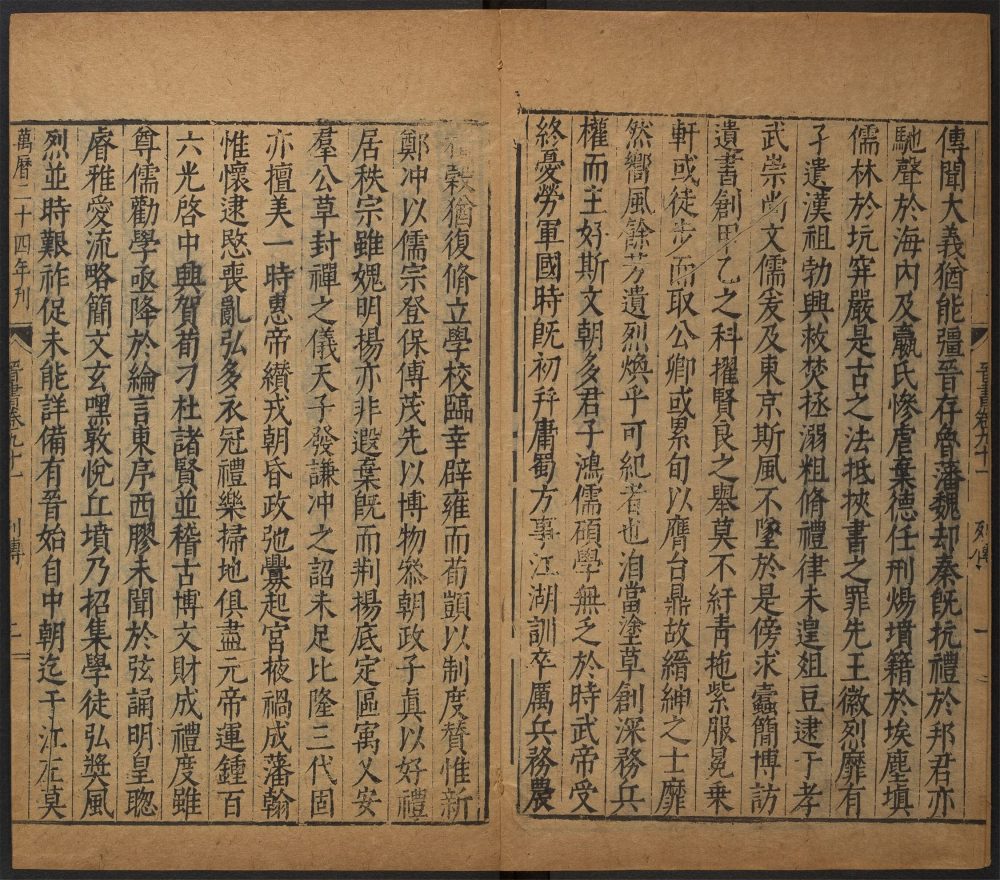 傳聞大義猶能彊晉存魯藩魏却秦旣抗禮於邦君亦
馳聲於海內及嬴氏慘虐棄德任刑煬墳籍於埃塵塡
儒林於坑穽嚴是古之法抵挾書之罪先王徽烈靡有
孑遺漢祖勃興救焚拯溺粗脩禮律未遑俎豆逮于孝
武崇尚文儒爰及東京斯風不墜於是傍求蠹簡博訪
遺書創甲乙之科擢賢良之舉莫不紆青拖紫服冕乗
軒或徒步而取公卿或累旬以膺台鼎故縉紳之士靡
然嚮風餘芳遺烈煥乎可紀者也洎當塗草創深務兵
權而主好斯文朝多君子鴻儒碩學無乏於時武帝受
終憂勞軍國時旣初幷庸蜀方事江湖訓卒厲兵務農
晉書卷九十一 列傳 一
穀猶復脩立學校臨幸辟雍而荀顗以制度賛惟新
鄭冲以儒宗登保傅茂先以博物叅朝政子眞以好禮
居秩宗雖媿明揚亦非遐棄旣而荆揚底定區㝢乂安
羣公草封禪之儀天子發謙冲之詔未足比隆三代固
亦擅美一時惠帝纘戎朝昏政弛釁起宮掖禍成藩翰
惟懷逮愍喪亂弘多衣冠禮樂掃地俱盡元帝運鍾百
六光啓中興賀荀刁杜諸賢並稽古博文財成禮度雖
尊儒勸學亟降於綸言東序西膠未聞於弦誦明皇聦
睿雅愛流略簡文玄嘿敦悅丘墳乃招集學徒弘奬風
烈並時艱祚促未能詳備有晉始自中朝迄于江左莫
萬曆二十四年刋
晉書卷九十一 列傳 二